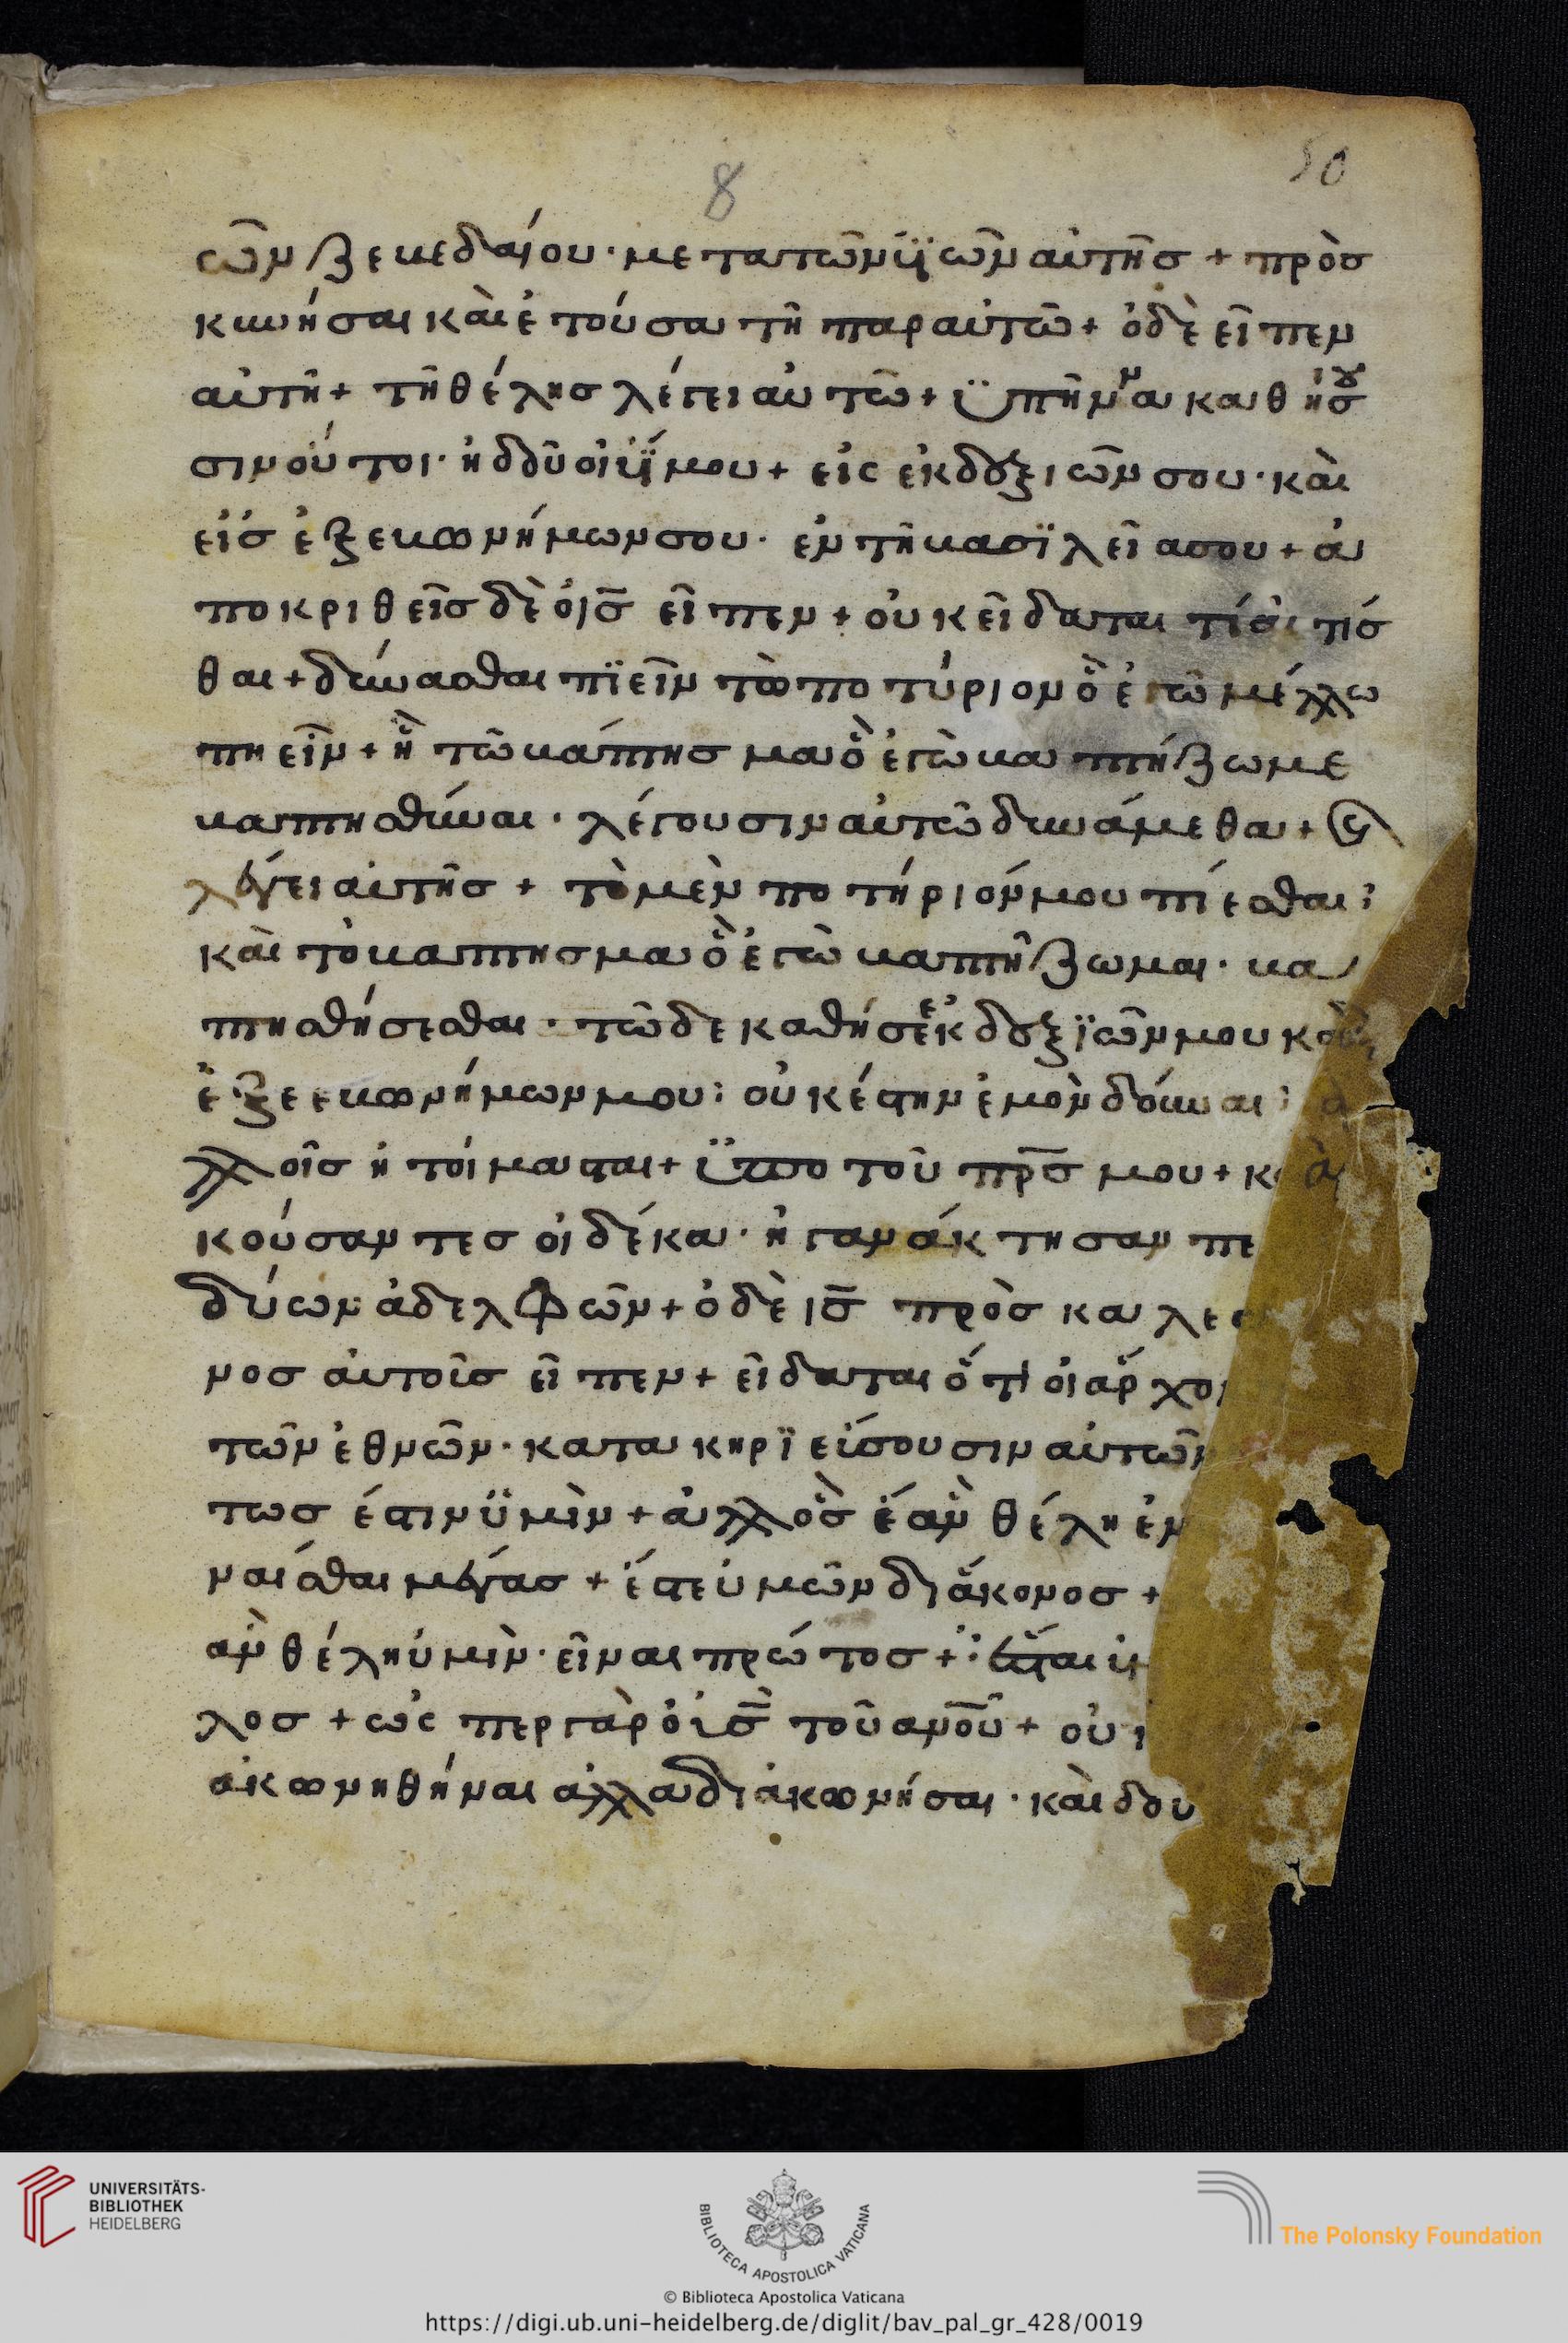 8
50
σῶν ζεβεδαίου · μετὰ τῶν ὑϊῶν αὐτῆσ + πρὸσ
κυνήσαι καὶ ἐτούσα τῆ παραὐτῶ + ὁδὲ εἶπεν
αὐτῆ + τῆ θέλησ λέγει αὐτῶ + ϋπῆ ἵνα καθήσου
σιν οὗτοι · ἡ δδῦοἱ ὑΐ μου + εἰς ἐκδδξιῶν σου · καὶ
εἱσ ἐξεβωνήμων σου · ἐν τῆ βασϊλεῖα σου + ἀ
ποκριθεῖσ δὲ ὁ ισ̅ εἶπεν + οὐκ εἶδαται τί αἰτίσ
θαι + δύνασθαι πϊεῖν τὼ ποτύριον ὃ ἐγῶ μέλλω
πηεῖν + ἢ τῶ βάπτησμα ὃ ἐγὼ βαπτήζωμε
βαπτησθῆναι · λέγουσιν αὐτῶ δυνάμεθα +
λέγει αὐτῆσ + τὸ μὲν ποτήριόν μου πίεσθαι :
καὶ τὸ βαπτησμα ὃ ἐγὼ βαπτῆζωμαι · βα
πτησθήσεσθαι · τῶ δε καθήσε ἐκ δδξϊῶν μου κὰι
ἐξεεβωνήμων μου : οὐκέστην ἐμὸν δόυναι : ἀ
λλοῖσ ἡτοίμασται + ϋπο τοῦ πρ̅σ μου + κὰι ἀ
κούσαντεσ οἱ δέκα · ἠγανάκτησαν πε
δύων ἀδελφῶν + ὁ δὲ ισ̅ πρὸσ καλεσ
νοσ αὐτοῖσ εἶπεν + εἶδαται ὅτι οἱ ἄρχον
τῶν ἐθνῶν · κατακηρϊεύσουσιν αὐτῶν
τωσ έστιν ϋμὶν + ἀλλὸσ ἐὰν θέλη ἐν
ναίσθαι μέγασ + ἔστε ὑμῶν διάκονοσ +
ὰν θέλη ὑμὶν · εἶναι πρώτοσ + ἔσται ὑ
λοσ + ὡς περ γὰρ ὁ ισ̅ τοῦ ανο̅ῦ + οὐ
ακωνηθήναι ἀλλα διάκωνήσαι · κὰι δου
UNIVERSITÄTS-
BIBLIOTHEK
HEIDELBERG
BIBLIOTECA APOSTOLICA VATICANA
The Polonsky Foundation
© Biblioteca Apostolica Vaticana
https://digi.ub.uni-heidelberg.de/diglit/bav_pal_gr_428/0019